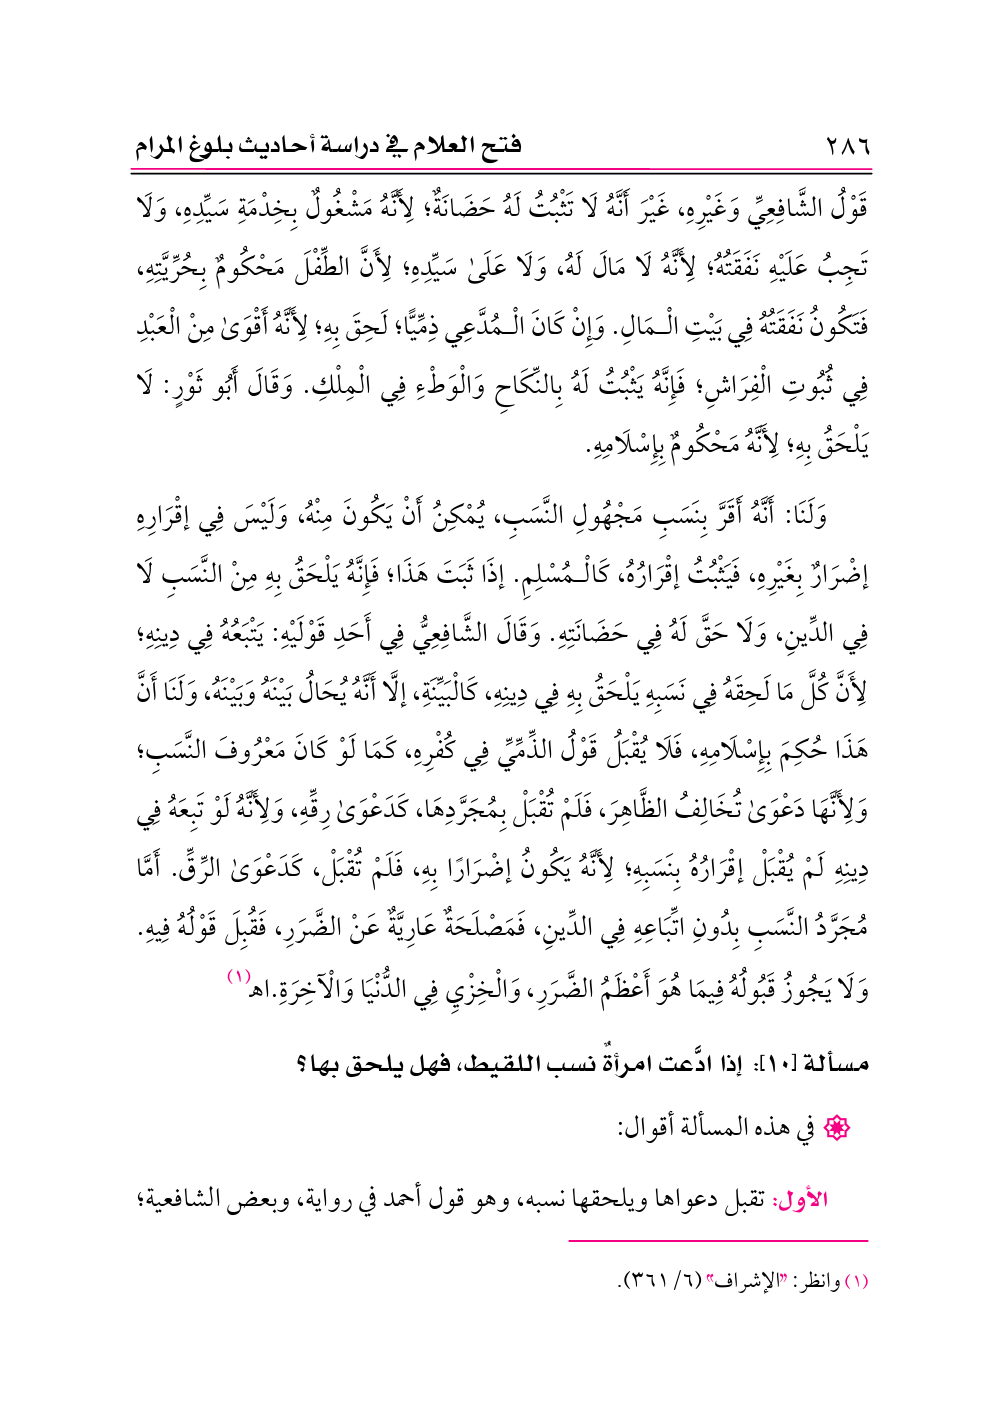 ٢٨٦ فتح العلام في دراسة أحاديث بلوغ المرام
قَوْلُ الشَّافِعِيِّ وَغَيْرِهِ، غَيْرَ أَنَّهُ لَا تَثْبُتُ لَهُ حَضَانَةٌ؛ لِأَنَّهُ مَشْغُولٌ بِخِدْمَةِ سَيِّدِهِ، وَلَا
تَجِبُ عَلَيْهِ نَفَقَتُهُ؛ لِأَنَّهُ لَا مَالَ لَهُ، وَلَا عَلَىٰ سَيِّدِهِ؛ لِأَنَّ الطِّفْلَ مَحْكُومٌ بِحُرِّيَّتِهِ،
فَتَكُونُ نَفَقَتُهُ فِي بَيْتِ الْـمَالِ. وَإِنْ كَانَ الْـمُدَّعِي ذِمِّيًّا؛ لَحِقَ بِهِ؛ لِأَنَّهُ أَقْوَىٰ مِنْ الْعَبْدِ
فِي ثُبُوتِ الْفِرَاشِ؛ فَإِنَّهُ يَثْبُتُ لَهُ بِالنِّكَاحِ وَالْوَطْءِ فِي الْمِلْكِ. وَقَالَ أَبُو ثَوْرٍ: لَا
يَلْحَقُ بِهِ؛ لِأَنَّهُ مَحْكُومٌ بِإِسْلَامِهِ.
وَلَنَا: أَنَّهُ أَقَرَّ بِنَسَبِ مَجْهُولِ النَّسَبِ، يُمْكِنُ أَنْ يَكُونَ مِنْهُ، وَلَيْسَ فِي إقْرَارِهِ
إضْرَارٌ بِغَيْرِهِ، فَيَثْبُتُ إقْرَارُهُ، كَالْـمُسْلِمِ. إذَا ثَبَتَ هَذَا؛ فَإِنَّهُ يَلْحَقُ بِهِ مِنْ النَّسَبِ لَا
فِي الدِّينِ، وَلَا حَقَّ لَهُ فِي حَضَانَتِهِ. وَقَالَ الشَّافِعِيُّ فِي أَحَدِ قَوْلَيْهِ: يَتْبَعُهُ فِي دِينِهِ؛
لِأَنَّ كُلَّ مَا لَحِقَهُ فِي نَسَبِهِ يَلْحَقُ بِهِ فِي دِينِهِ، كَالْبَيِّنَةِ، إلَّا أَنَّهُ يُحَالُ بَيْنَهُ وَبَيْنَهُ، وَلَنَا أَنَّ
هَذَا حُكِمَ بِإِسْلَامِهِ، فَلَا يُقْبَلُ قَوْلُ الذِّمِّيِّ فِي كُفْرِهِ، كَمَا لَوْ كَانَ مَعْرُوفَ النَّسَبِ؛
وَلِأَنَّهَا دَعْوَىٰ تُخَالِفُ الظَّاهِرَ، فَلَمْ تُقْبَلْ بِمُجَرَّدِهَا، كَدَعْوَىٰ رِقِّهِ، وَلِأَنَّهُ لَوْ تَبِعَهُ فِي
دِينِهِ لَمْ يُقْبَلْ إقْرَارُهُ بِنَسَبِهِ؛ لِأَنَّهُ يَكُونُ إضْرَارًا بِهِ، فَلَمْ تُقْبَلْ، كَدَعْوَىٰ الرِّقِّ. أَمَّا
مُجَرَّدُ النَّسَبِ بِدُونِ اتِّبَاعِهِ فِي الدِّينِ، فَمَصْلَحَةٌ عَارِيَّةٌ عَنْ الضَّرَرِ، فَقُبِلَ قَوْلُهُ فِيهِ.
وَلَا يَجُوزُ قَبُولُهُ فِيمَا هُوَ أَعْظَمُ الضَّرَرِ، وَالْخِزْيِ فِي الدُّنْيَا وَالْآخِرَةِ.اهـ(١)
مسألة [١٠]: إذا ادَّعت امرأةٌ نسب اللقيط، فهل يلحق بها؟
في هذه المسألة أقوال:
الأول: تقبل دعواها ويلحقها نسبه، وهو قول أحمد في رواية، وبعض الشافعية؛
(١) وانظر: "الإشراف" (٦/ ٣٦١).